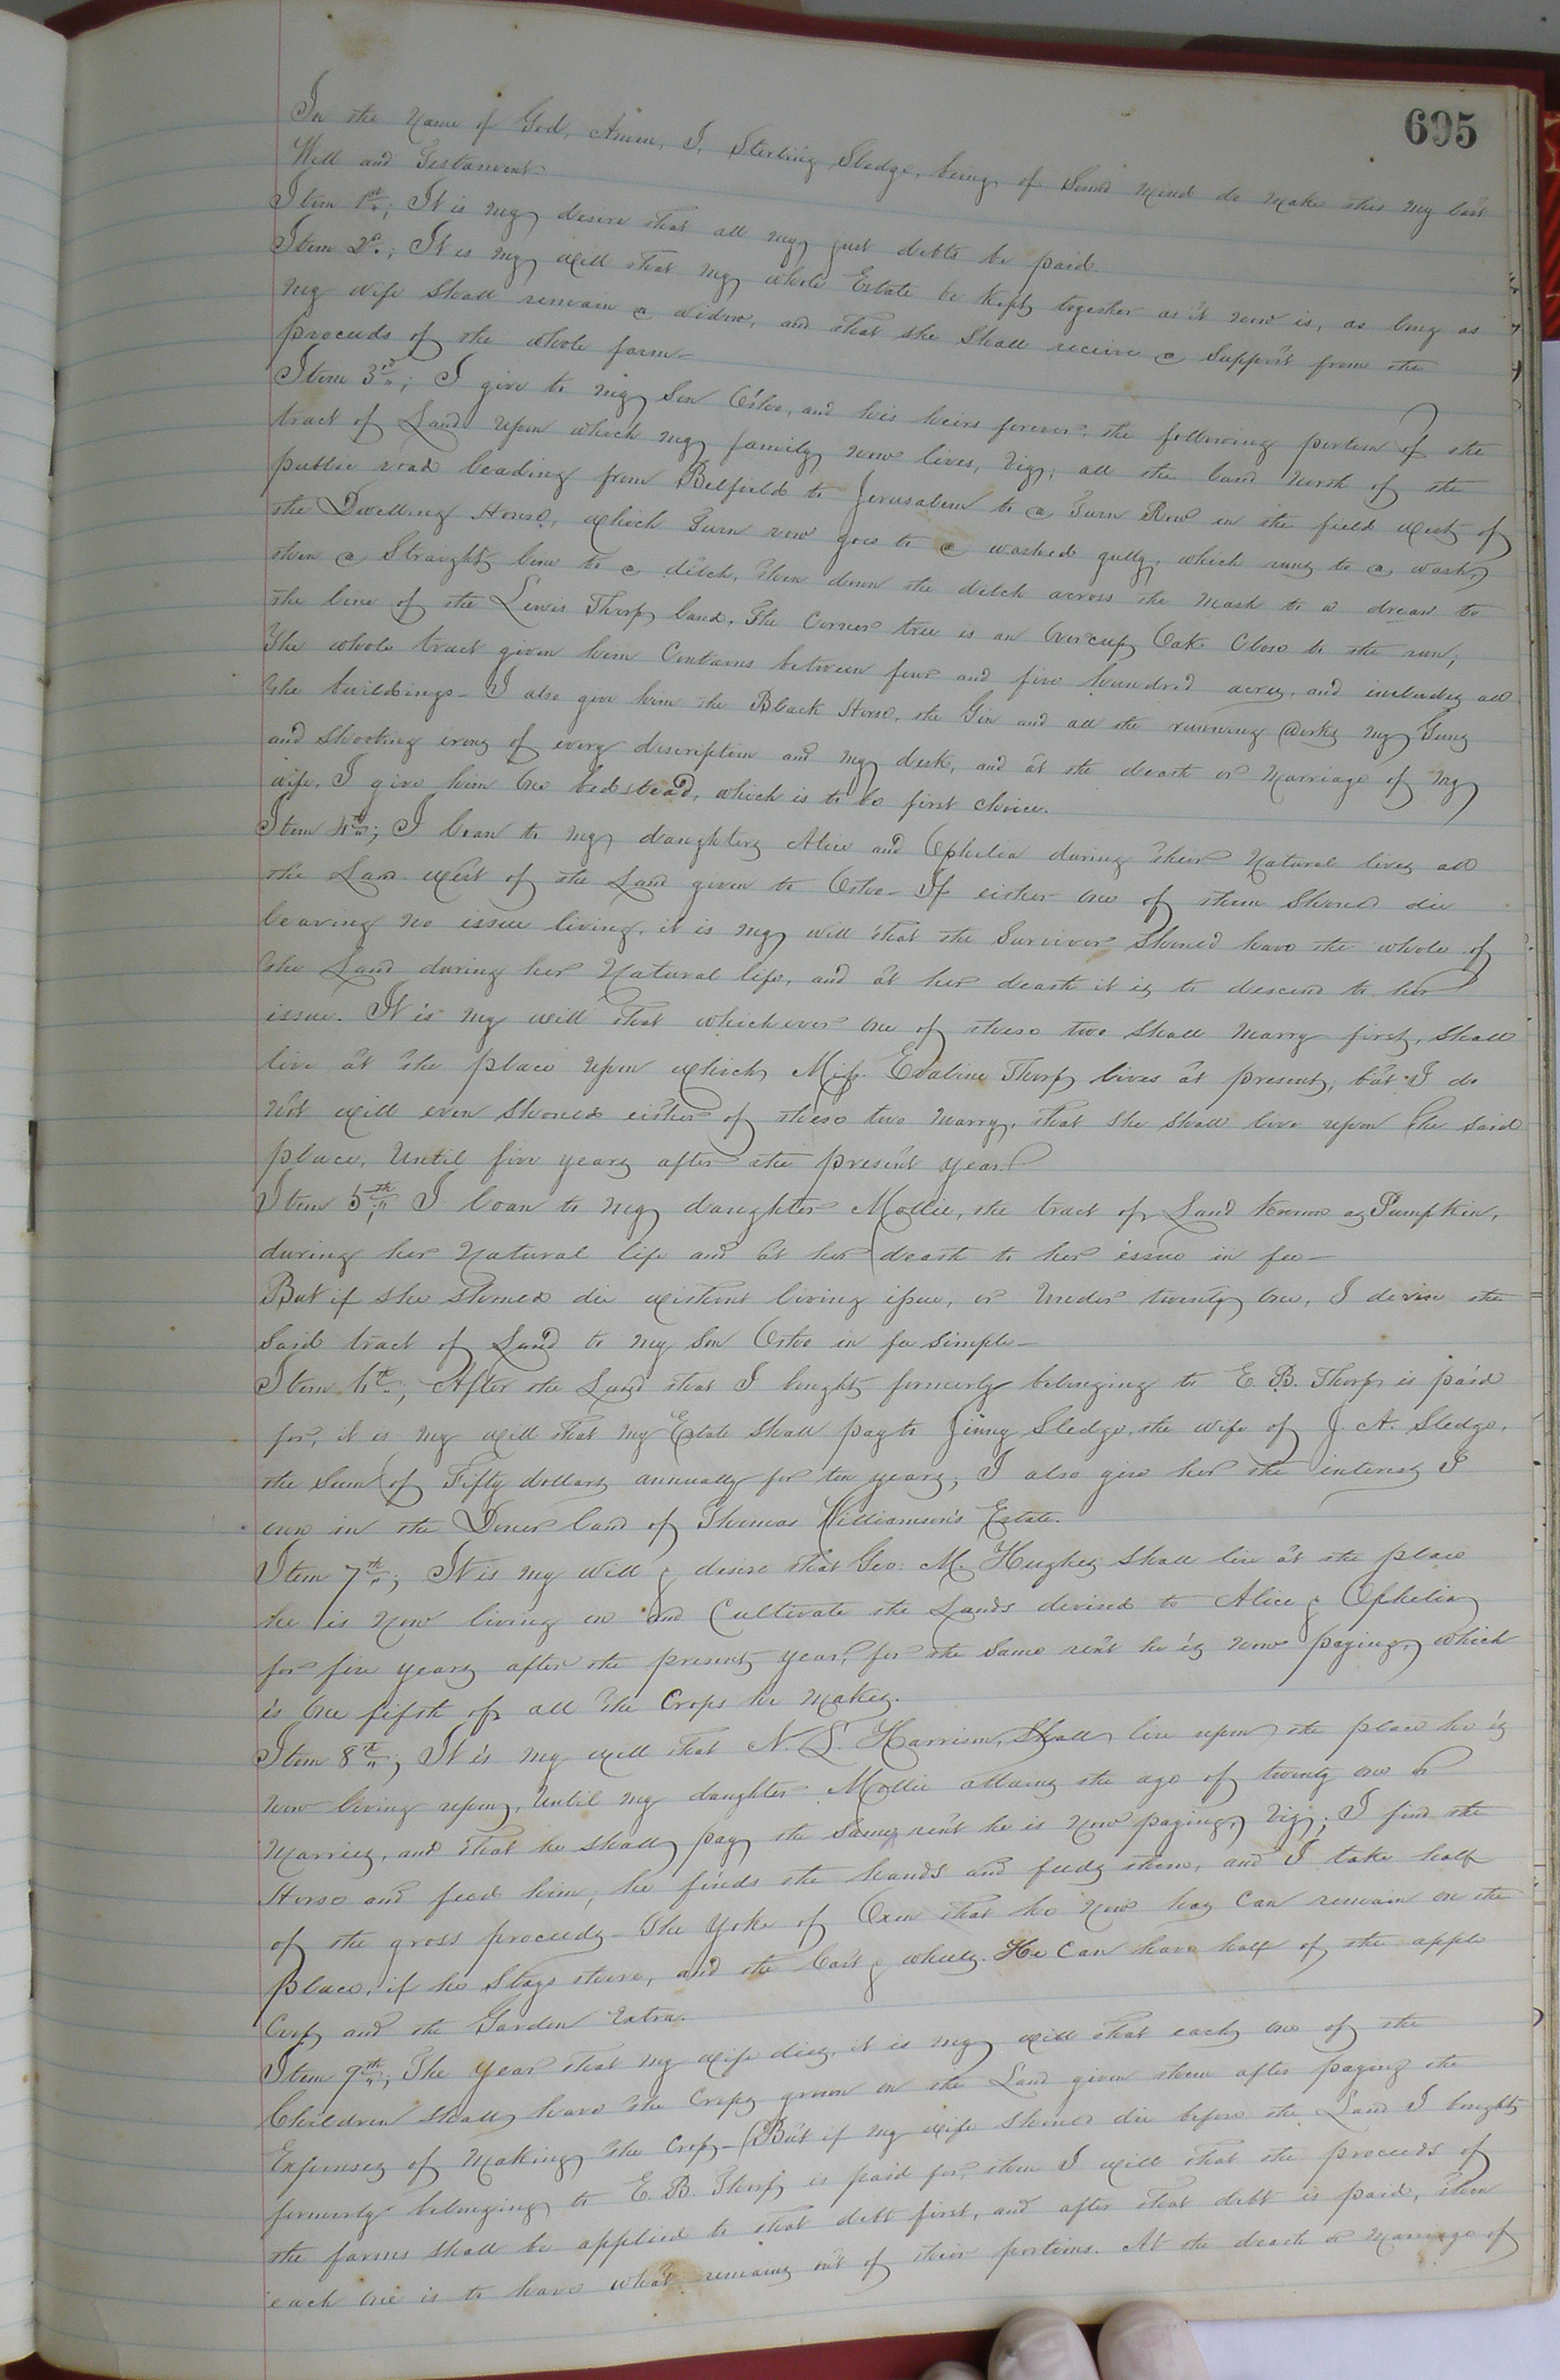 695
In the Name of God, Amen, I, Sterling Sledge, being of Sound Mind do Make this my last
Will and Testament-
Item 1st; It is my desire that all my just debts be paid.
Item 2d; It is my will that my whole Estate be Kept together as it now is, as long as
my wife shall remain a widow, and that she shall receive a Support from the
proceeds of the whole farm-
Item 3rd; I give to my Son and his heirs forever, the following portion of the
tract of Land upon which my family now lives, viz; all the land North of the
public road leading from Belfield to Jerusalem to a Turn Row in the field west of
the Dwelling House, which Turn row goes to a washed gully, which runs to a wash,
then a Straight line to a ditch, then down the ditch across the Mash to a drean to
the line of the Lewis Thorp land, The Corner tree is an Overcup Oak Close to the run;
The whole tract given him Contains between four and five hundred acres, and includes all
the buildings- I also give him the Black Horse, the Gin and all the running works my Guns
and shooting irons of every description and my desk, and at the death or Marriage of my
wife, I give him One bedstead, which is to be first choice.
Item 4th; I loan to my daughters Alice and Ophelia during their Natural lives all
the Land West of the Land given to If either one of them Should die
leaving no issue living, it is my will that the Survivor Should have the whole of
the Land during her Natural life, and at her death it is to descend to her
issue. It is my will that whichever one of these two shall marry first, shall
live at the place upon which Miss Evaline Thorp lives at present, but I do
not will even should either of these two marry, that she shall live upon the said
place, Until five years after the present year.
Item 5th; I loan to my daughter Mollie, the tract of Land known as Pumpkin,
during her Natural life and at her death to her issue in fee-
But if she should die without living issue, or Under twenty One, I devise the
said tract of Land to my Son in fee simple-
Item 6th; After the Land that I bought formerly belonging to E. B. Thorp is paid
for, it is my will that my Estate shall pay to Jinny Sledge, the wife of J. A. Sledge,
the Sum of Fifty dollars annually for ten years; I also give her the interest I
own in the Dower land of Thomas Williamson's Estate.
Item 7th; It is my Will & desire that Geo. M. Hughes shall live at the place
he is Now living on and Cultivate the Lands devised to Alice & Ophelia
for five years after the present year, for the same rent he is now paying, which
is One fifth of all the Crops he Makes.
Item 8th; It is my will that N. L. Harrison, Shall live upon the place he is
now living upon, Until my daughter Mollie attains the age of twenty one or
Marries, and that he shall pay the same rent he is Now paying, viz; I find the
Horse and feed him, he finds the hands and feeds them, and I take half
of the gross proceeds- The Yoke of Oxen that he Now has Can remain on the
place, if he Stays there, and the Cart & wheels. He Can have half of the apple
Crop and the Garden Extra.
Item 9th; The Year that my wife dies, it is my will that each one of the
Children shall have the Crops grown on the Land given them after paying the
Expenses of Making the Crop- But if my wife should die before the Land I bought
formerly belonging to E. B. Thorp is paid for, then I will that the proceeds of
the farms shall be applied to that debt first, and after that debt is paid, then
each one is to have what remains out of their portions. At the death or Marriage of